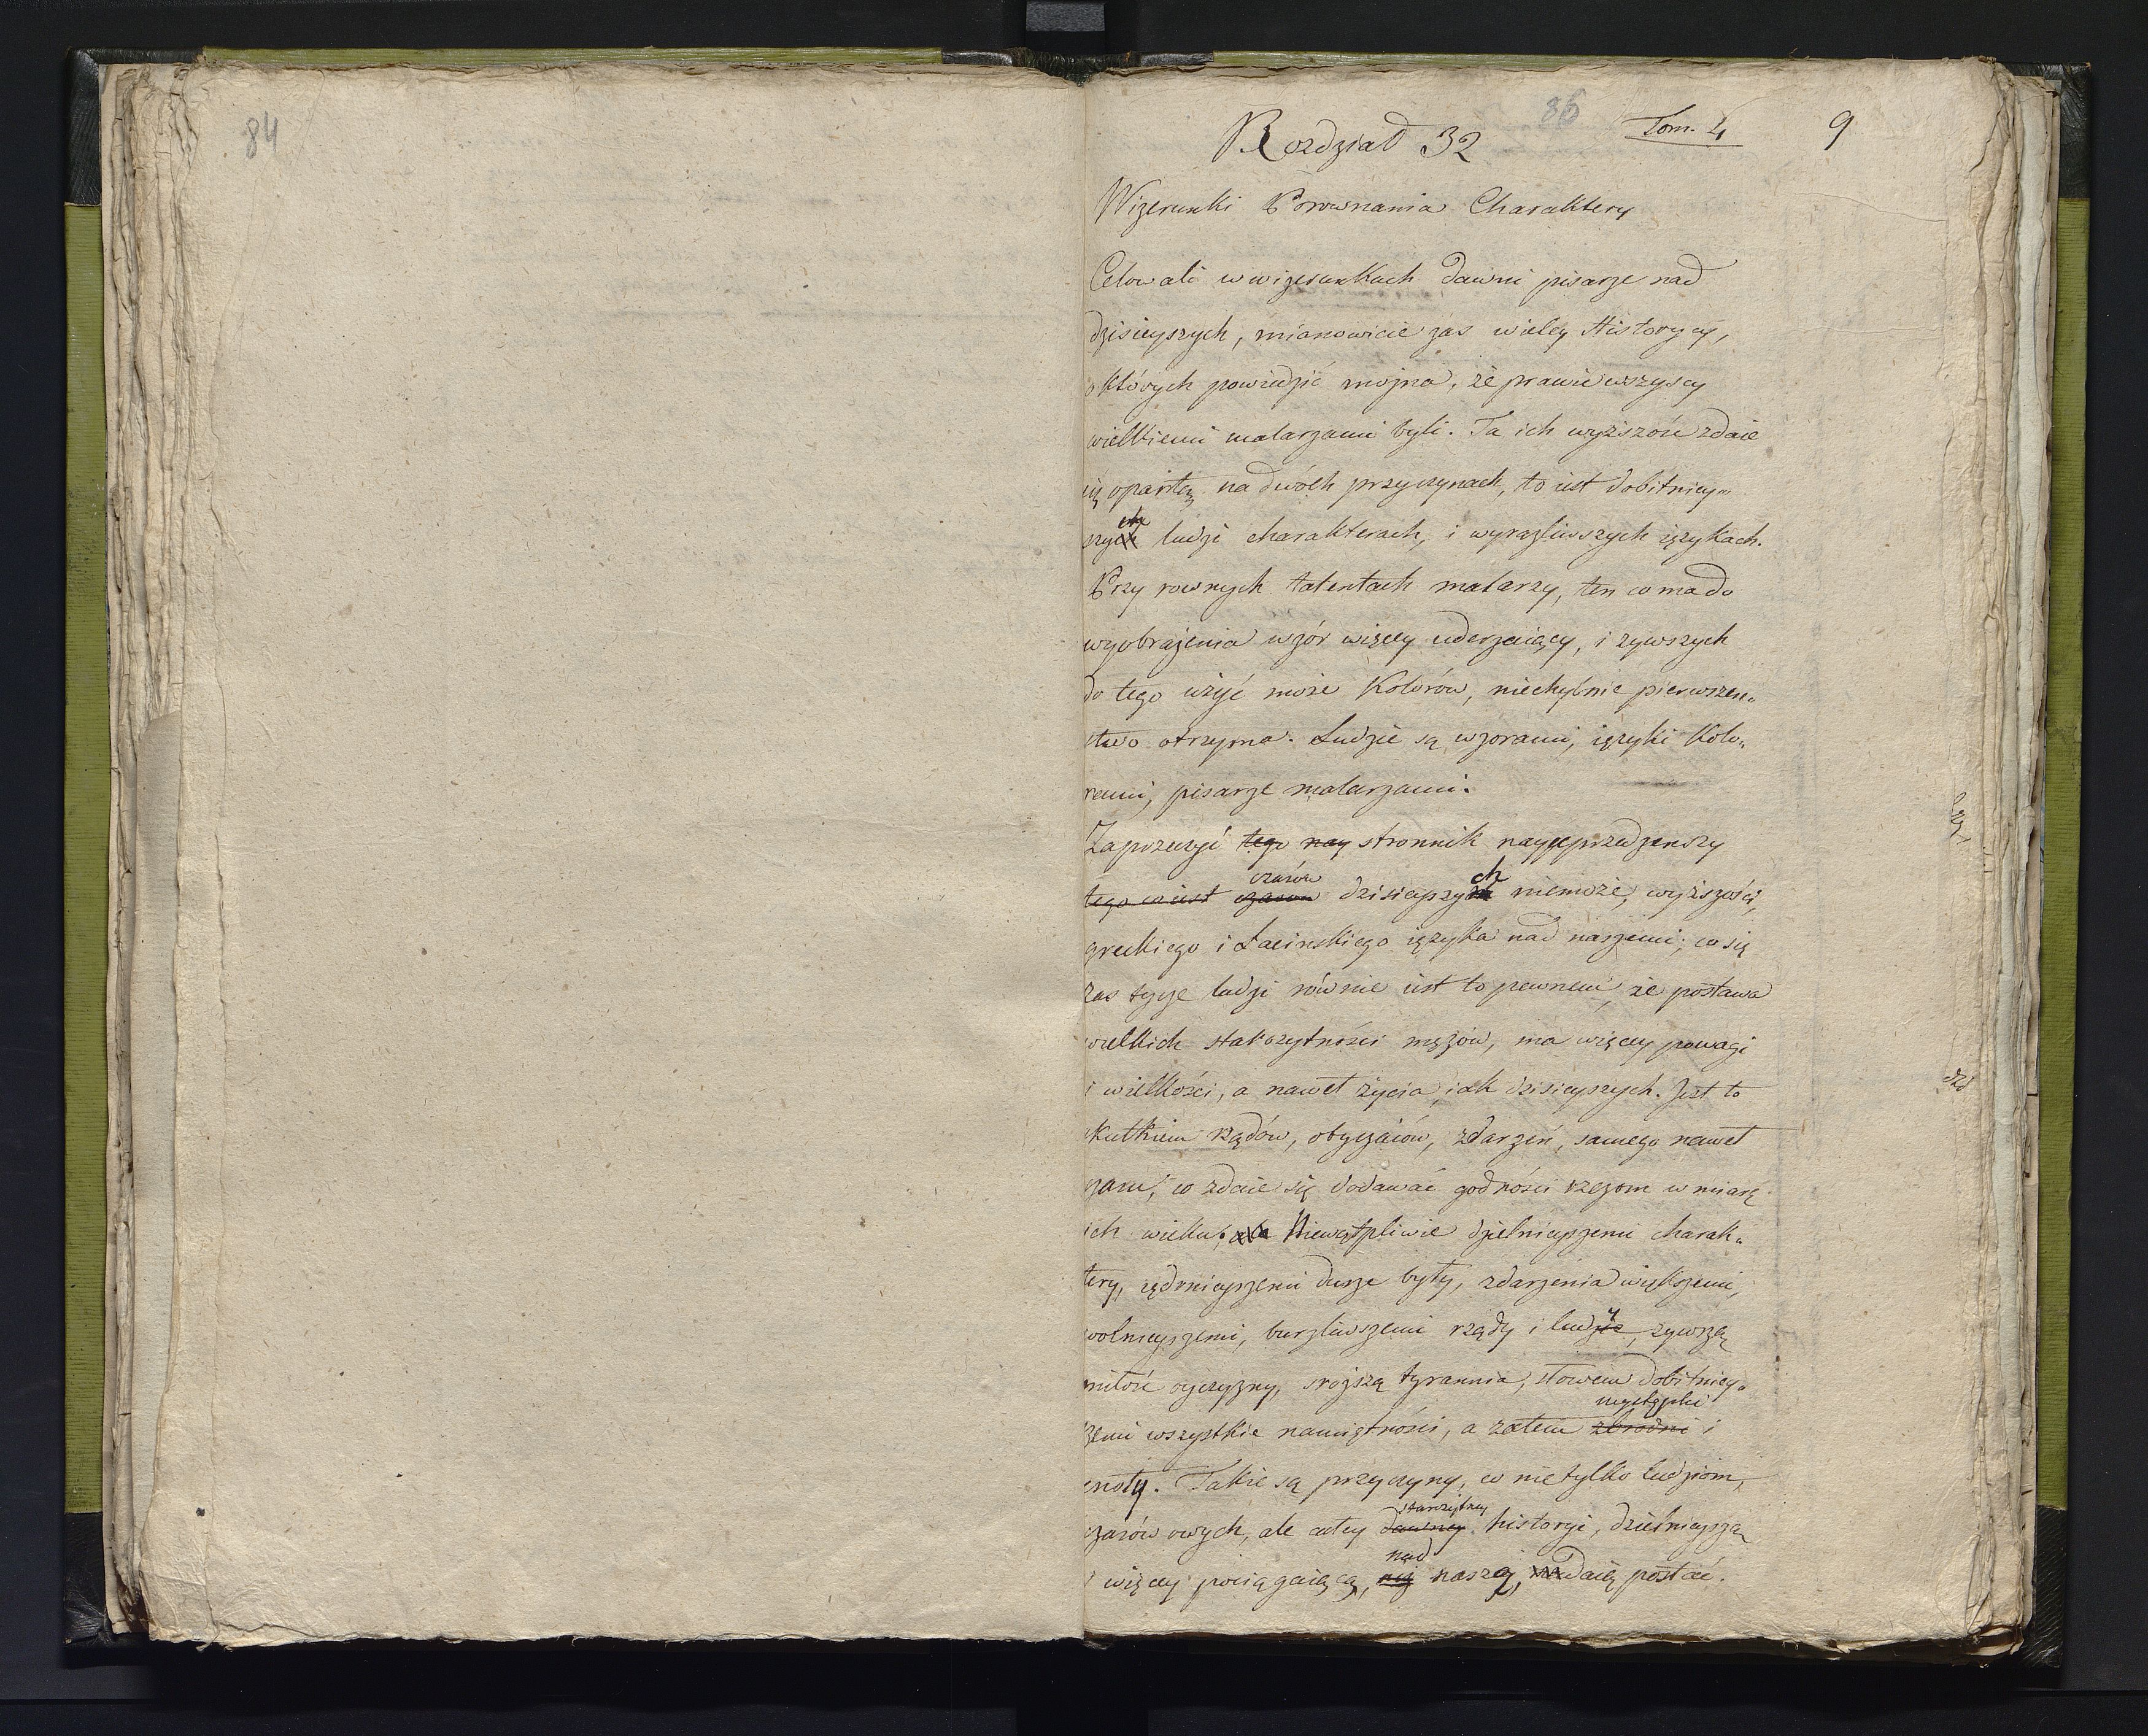 84
86
Tom. 4
9
Rozdział 32
Wizerunki Porownania Charaktery
Celowali w wizerunkach dawni pisarze nad
dzisieyszych, mianowicie zas wielcy Historycy,
o których powiedzić mozna, że prawie wszyscy
wielkiemi malarzami byli. Ta ich wyższość zdaie
się opartą na dwóch przyczynach, to iest dobitniey-
szych ludzi charakterach, i wyrazliwszych ięzykach.
Przy rownych talentach malarzy, ten co ma do
wyobrażenia wzór więcey uderzaiący, i zywszych
do tego użyć może kolorów, niechybnie pierwszen-
stwo otrzyma. Ludzie są wzorami, ięzyki kolo-
rami, pisarze malarzami.
Zaprzeczyć tego nay stronnik
czasów
tego co iest czasow dzisieyszych niemoże, wyższości,
greckiego i Łacinskiego ięzyka nad naszemi; co się
zas tycze ludzi równie iest to pewnem, że postawa
wielkich starożytności mężów, ma więcey powagi
i wielkości, a nawet życia, iak dzisieyszych. Jest to
skutkiem rządów, obyczaiów, zdarzeń, samego nawet
czasu, co zdaie się dodawać godności rzeczom w miarę
ich wieku; Niewątpliwie dzielnieyszemi charak-
tery, iędrnieyszemi dusze były, zdarzenia większemi,
wolnieyszemi, burzliwszemi rządy i ludy, zywszą
miłość oyczyzny, sroższą tyrannia, słowem dobitniey-
występki
szemi wszystkie namiętności, a zatem zbrodni i
cnoty. Takie są przyczyny, co nie tylko ludziom,
starożytney
czasów owych, ale całey dawney historyi, dzielnieyszą
nad
i więcey pociągaiącą, niż naszą, nadaią postać.